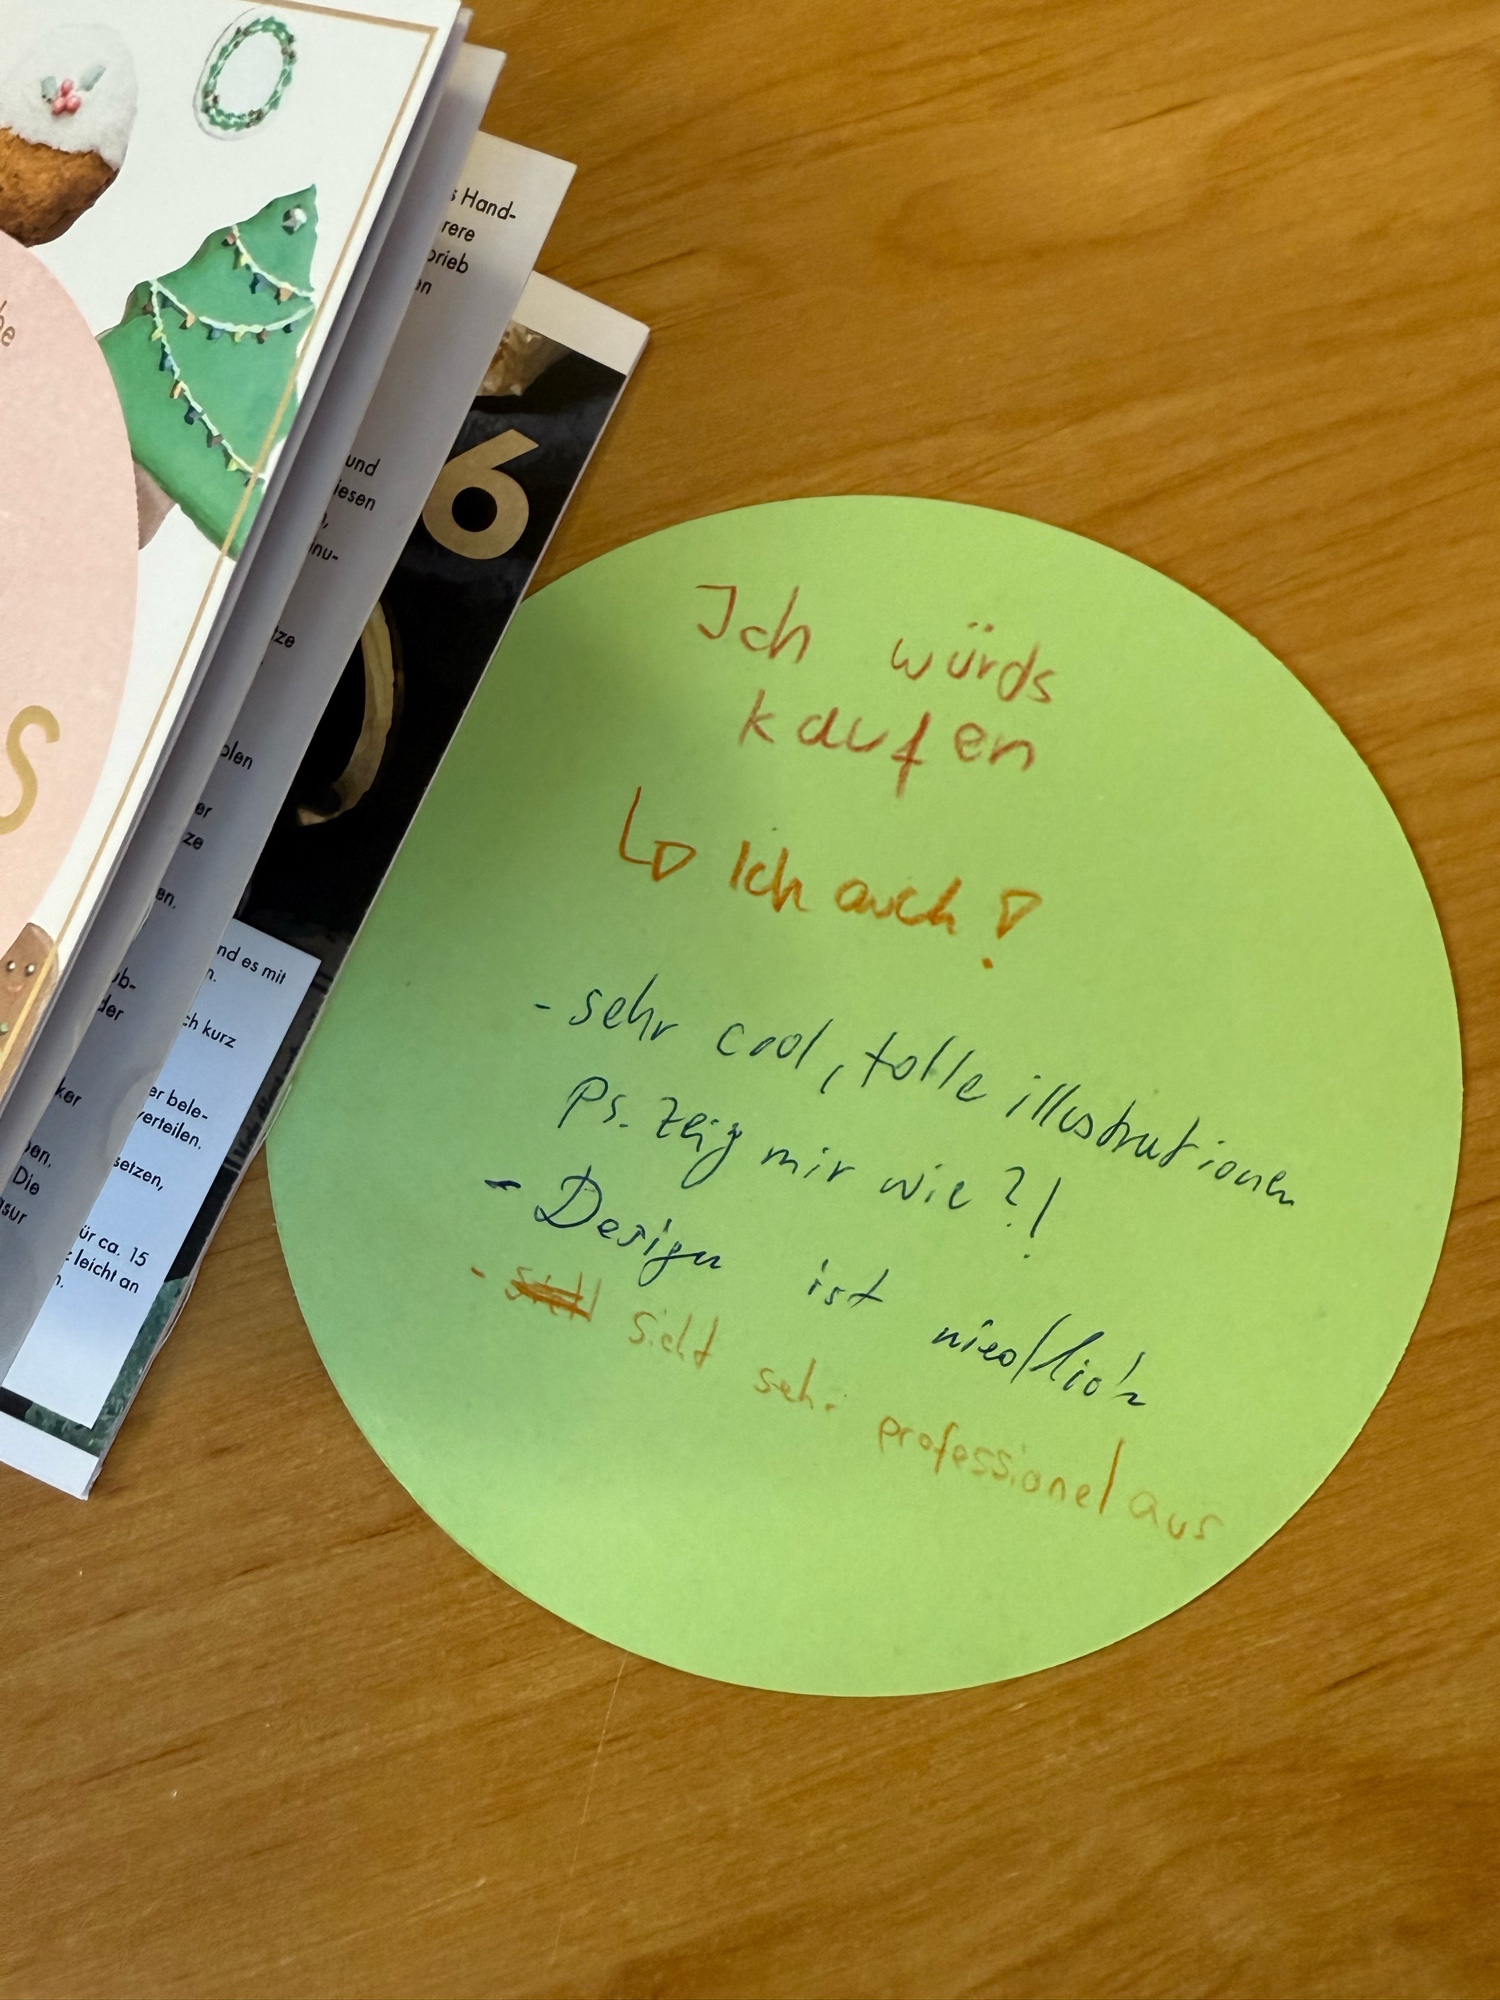 be
S
s Hand-
rere
orieb
en
6
und
iesen
n,
inu-
tze
olen
er
ze
en.
ub-
der
ker
ben.
Die
asur
nd es mit
n.
ch kurz
er bele-
verteilen.
setzen,
ür ca. 15
z leicht an
n.
Ich würds
kaufen
Ich auch!
- sehr cool, tolle illustrationen
Ps. zeig mir wie?!
- Design ist niedlich
- sieht sehr professionel aus